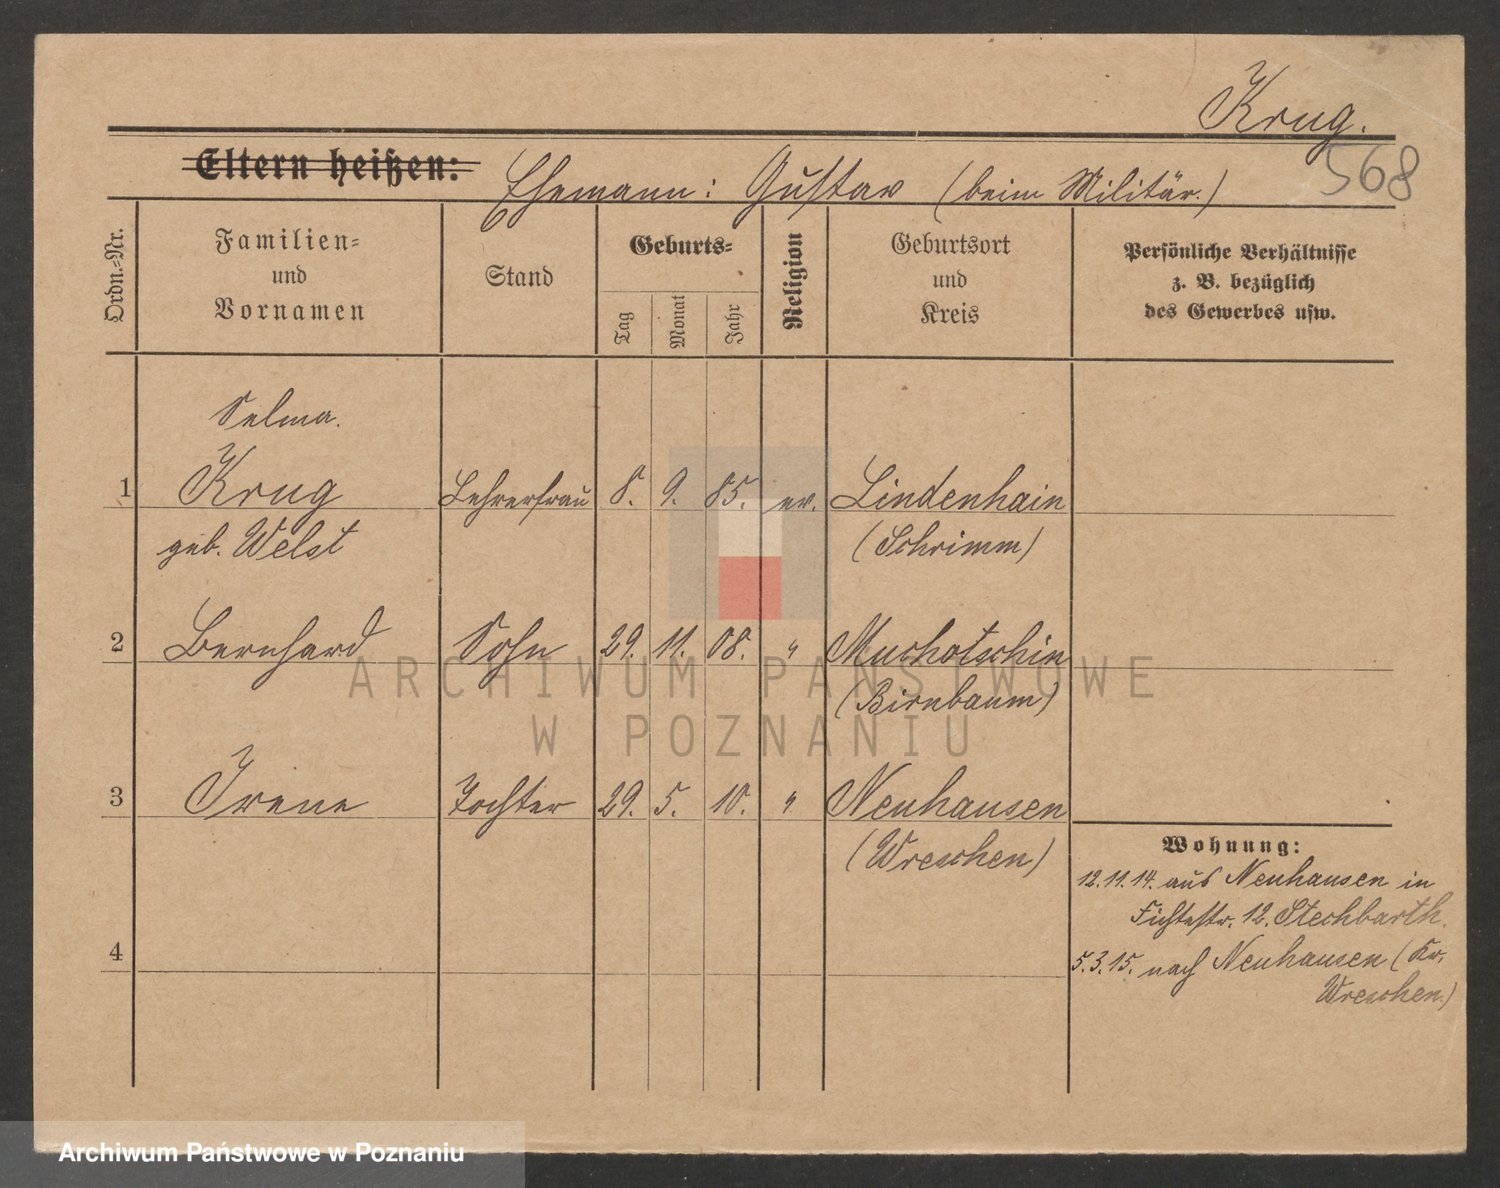 Krug.
568
Eltern heißen: Ehemann: Gustav (beim Militär.)
Ordn.-Nr.
Familien-
und
Vornamen
Stand
Geburts-
Tag
Monat
Jahr
Religion
Geburtsort
und
Kreis
Persönliche Verhältnisse
z. B. bezüglich
des Gewerbes usw.
Selma.
1 Krug Lehrerfrau 8. 9. 85. ev. Lindenhain
geb. Welst (Schrimm)
2 Bernhard Sohn 29. 11. 08. " Muchotschin
(Birnbaum)
3 Irene Tochter 29. 5. 10. " Neuhausen
(Wreschen)
4
Wohnung:
12.11.14. aus Neuhausen in
Fichtestr. 12. Stechbarth.
5.3.15. nach Neuhausen (Kr.
Wreschen.)
ARCHIWUM PAŃSTWOWE
W POZNANIU
Archiwum Państwowe w Poznaniu